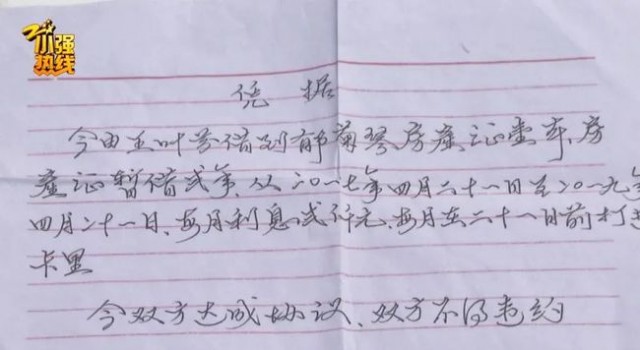 小强热线
凭 据
今由王叶芬借到郁菊琴房产证壹本,房
产证暂借贰年,从二〇一七年四月二十一日至二〇一九年
四月二十一日,每月利息贰仟元,每月在二十一日前打到
卡里
今双方达成协议、双方不得违约